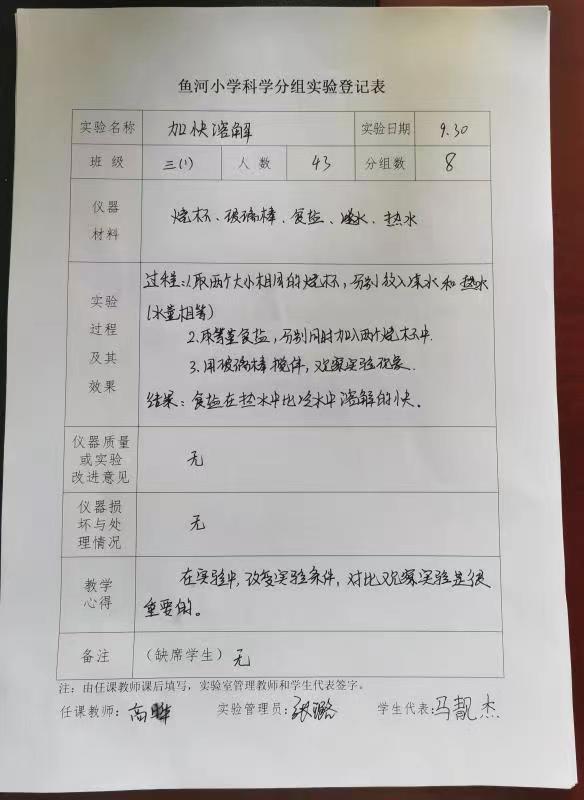 鱼河小学科学分组实验登记表
实验名称 加快溶解 实验日期 9.30
班级 三(1) 人数 43 分组数 8
仪器
材料
烧杯、玻璃棒、食盐、冰水、热水
实验
过程
及其
效果
过程:1.取两个大小相同的烧杯,分别放入凉水和热水
(水量相等)
2.取等量食盐,分别同时加入两个烧杯中.
3.用玻璃棒搅伴,观察实验现象.
结果:食盐在热水中比冷水中溶解的快。
仪器质量
或实验
改进意见
无
仪器损
坏与处
理情况
无
教学
心得
在实验中,改变实验条件,对比观察实验是很
重要的。
备注 (缺席学生) 无
注:由任课教师课后填写,实验室管理教师和学生代表签字。
任课教师:高晔 实验管理员:张璐 学生代表:马靓杰